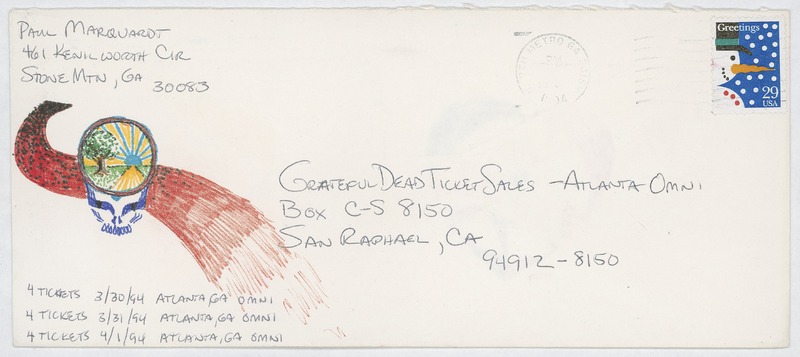 Paul Marquardt
461 Kenilworth Cir
Stone Mtn, GA
30083
Greetings
29
USA
Grateful Dead Ticket Sales - Atlanta Omni
Box C-S 8150
San Raphael, CA
94912-8150
4 Tickets 3/30/94 Atlanta, GA Omni
4 Tickets 3/31/94 Atlanta, GA Omni
4 Tickets 4/1/94 Atlanta, GA Omni